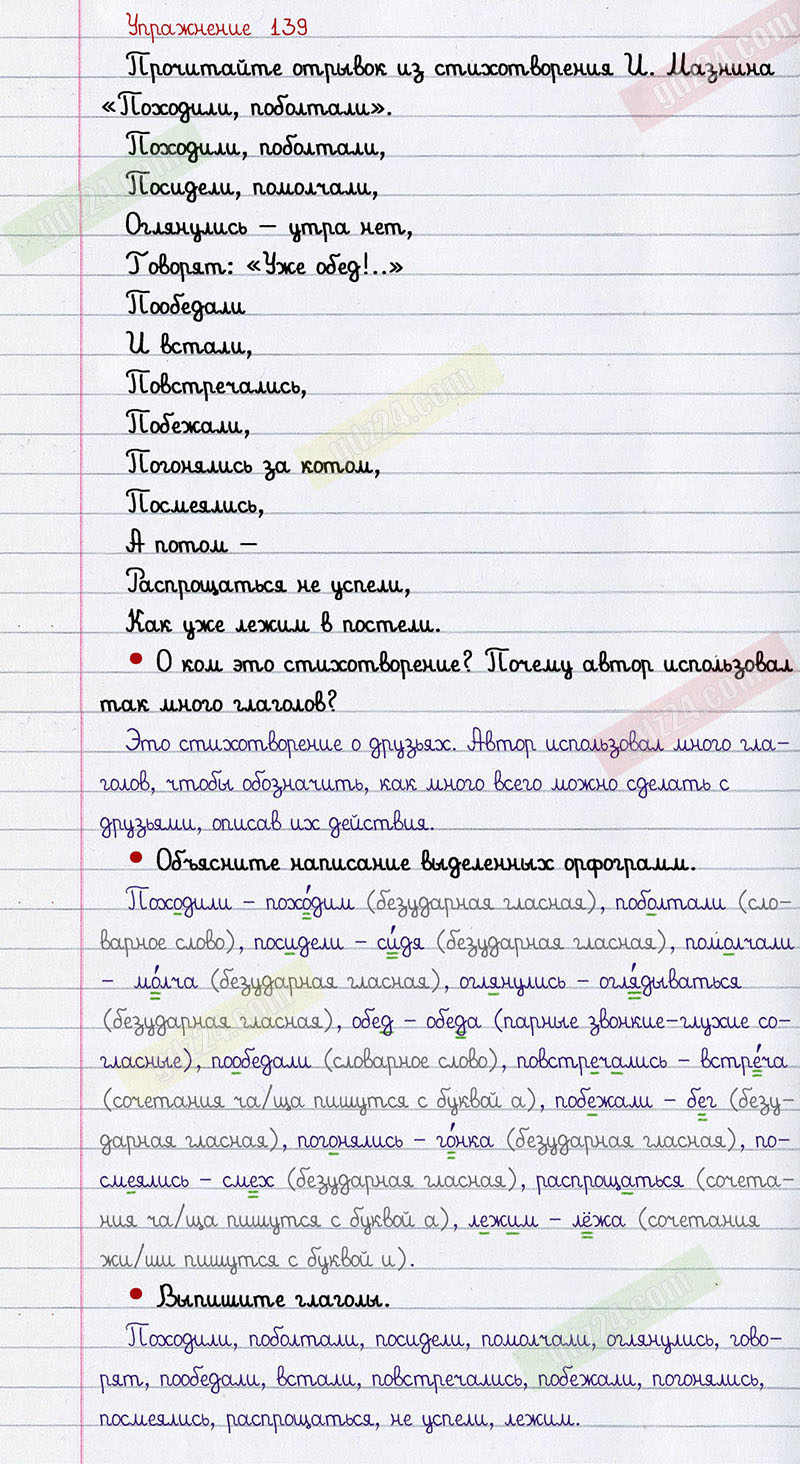 Упражнение 139
Прочитайте отрывок из стихотворения И. Мазнина
«Походили, поболтали».
Походили, поболтали,
Посидели, помолчали,
Оглянулись – утра нет,
Говорят: «Уже обед!..»
Пообедали
И встали,
Повстречались,
Побежали,
Погонялись за котом,
Посмеялись,
А потом –
Распрощаться не успели,
Как уже лежим в постели.
• О ком это стихотворение? Почему автор использовал
так много глаголов?
Это стихотворение о друзьях. Автор использовал много гла-
голов, чтобы обозначить, как много всего можно сделать с
друзьями, описав их действия.
• Объясните написание выделенных орфограмм.
Походили – похо́дим (безударная гласная), поболтали (сло-
варное слово), посидели – си́дя (безударная гласная), помолчали
– мо́лча (безударная гласная), оглянулись – огля́дываться
(безударная гласная), обед – обеда (парные звонкие-глухие со-
гласные), пообедали (словарное слово), повстречались – встре́ча
(сочетания ча/ща пишутся с буквой а), побежали – бег (безу-
дарная гласная), погонялись – го́нка (безударная гласная), по-
смеялись – смех (безударная гласная), распрощаться (сочета-
ния ча/ща пишутся с буквой а), лежим – лёжа (сочетания
жи/ши пишутся с буквой и).
• Выпишите глаголы.
Походили, поболтали, посидели, помолчали, оглянулись, гово-
рят, пообедали, встали, повстречались, побежали, погонялись,
посмеялись, распрощаться, не успели, лежим.
gdz24.com
gdz24.com
gdz24.com
gdz24.com
gdz24.com
gdz24.com